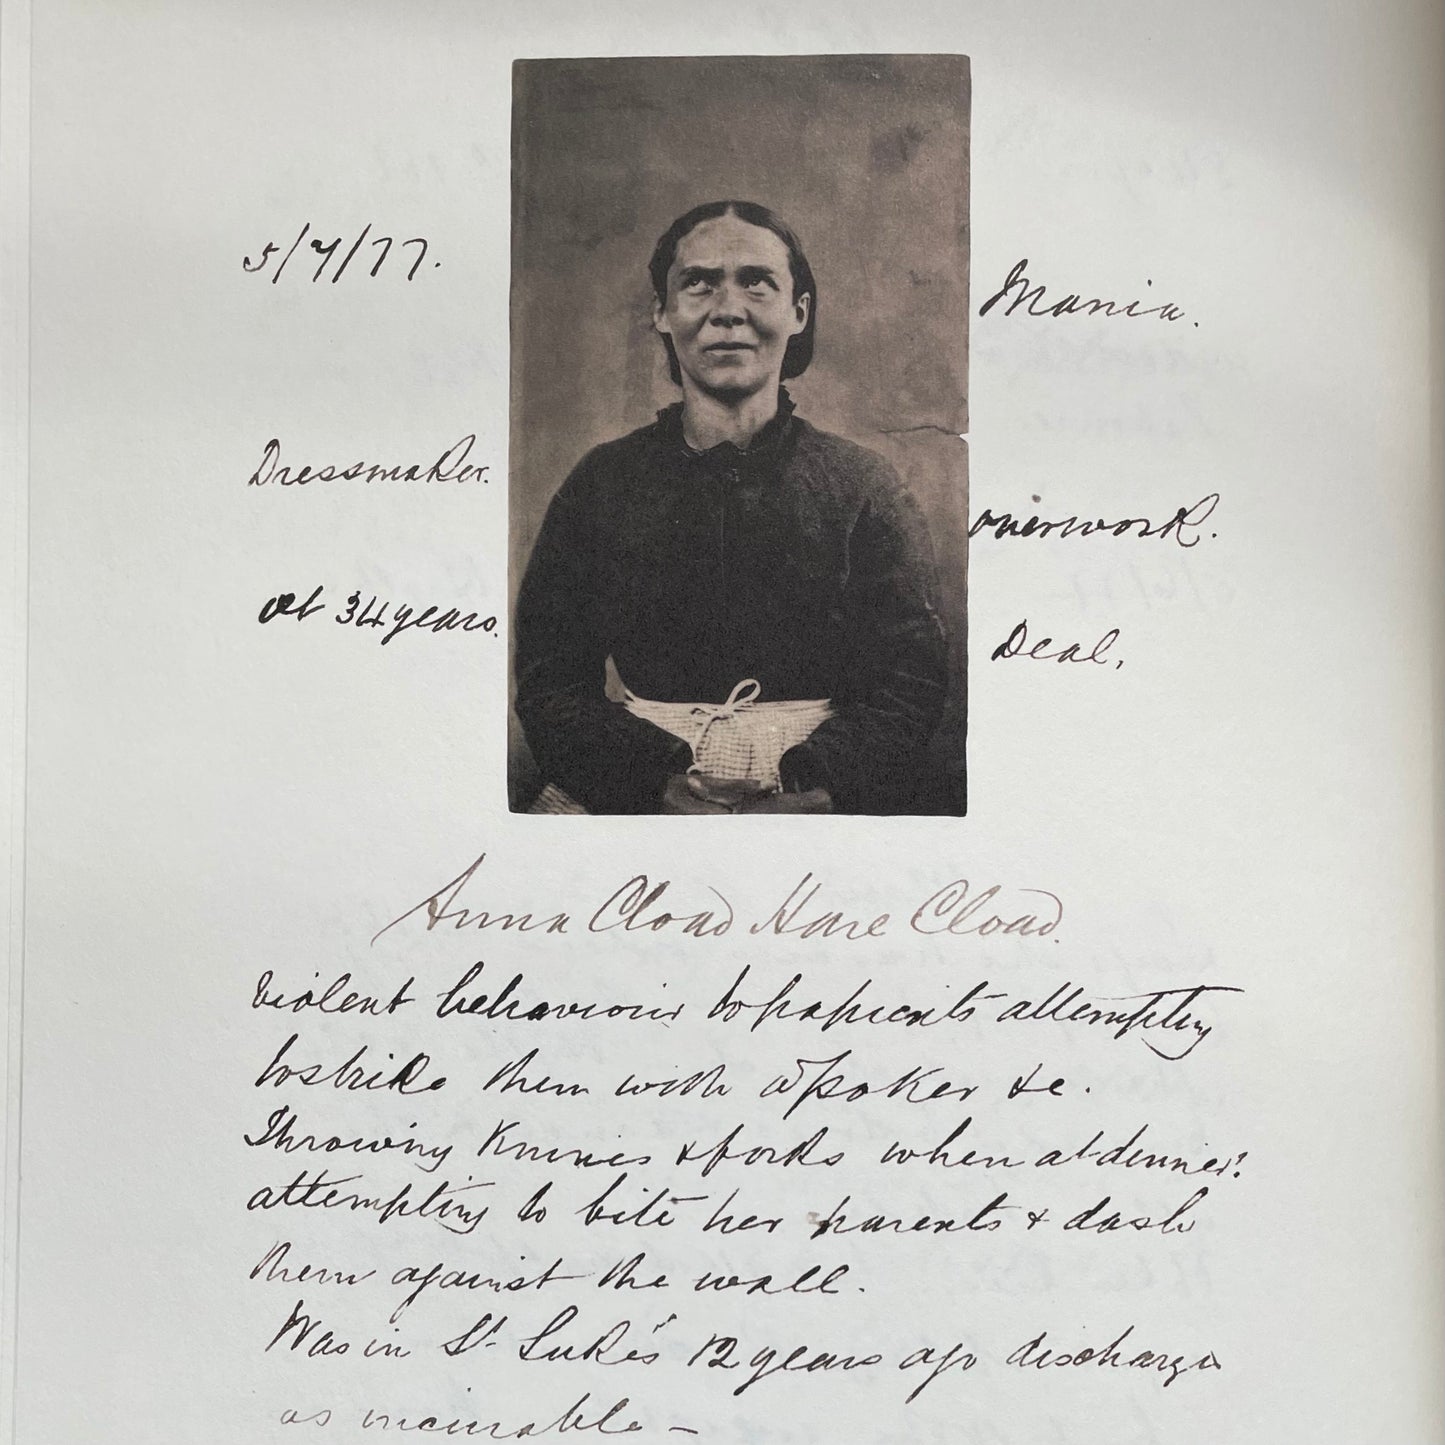 5/7/77.
Mania.
Dressmaker.
overwork.
æt 34 years.
Deal.
Anna Cload Hare Cload.
Violent behaviour to parients attempting
to strike them with a poker &c.
Throwing Knives & forks when at dinner.
attempting to bite her parents & dash
them against the wall.
Was in St. Luke's 12 years ago discharged
as incurable –